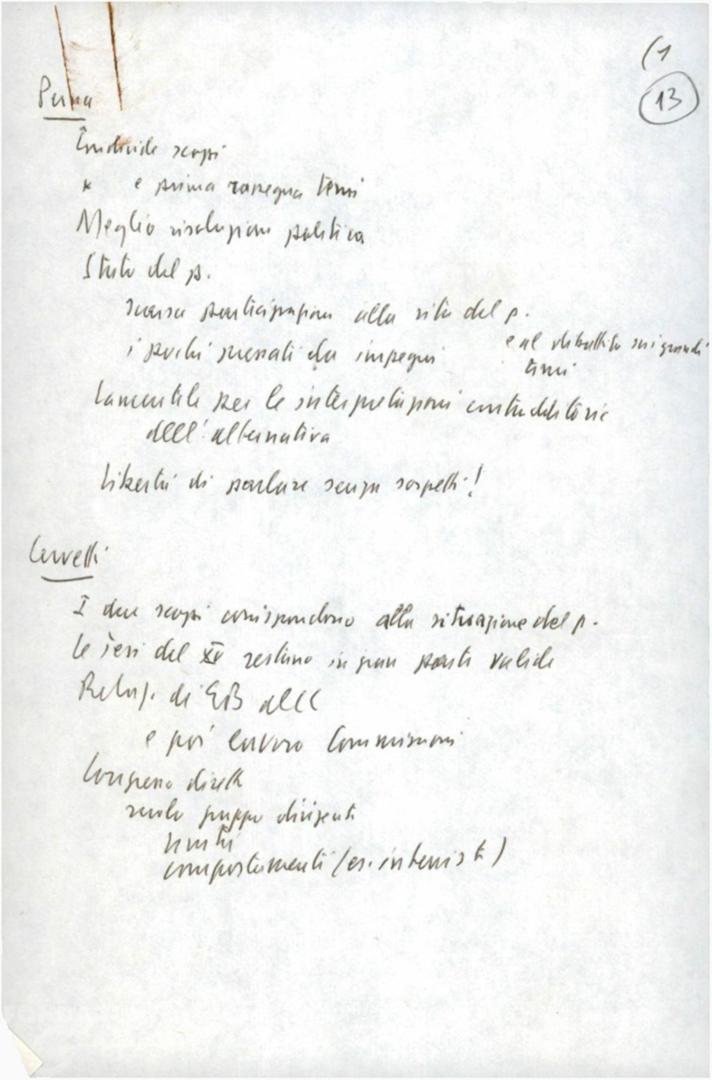 (1
13
Perna
Condivide scopi
e prima rassegna temi
Meglio risoluzione politica
Stato del p.
scarsa partecipazione alla vita del p.
e al dibattito sui grandi
temi
i pochi pressati da impegni
Lamentele per le interpretazioni contraddittorie
dell'alternativa
Libertà di parlare senza sospetti!
Cervetti
I due scopi corrispondono alla situazione del p.
Le tesi del XV restano in gran parte valide
Relaz. di EB al CC
e poi lavoro Commissioni
Congresso
ruolo gruppo dirigente
limiti
comportamenti (es. interviste)